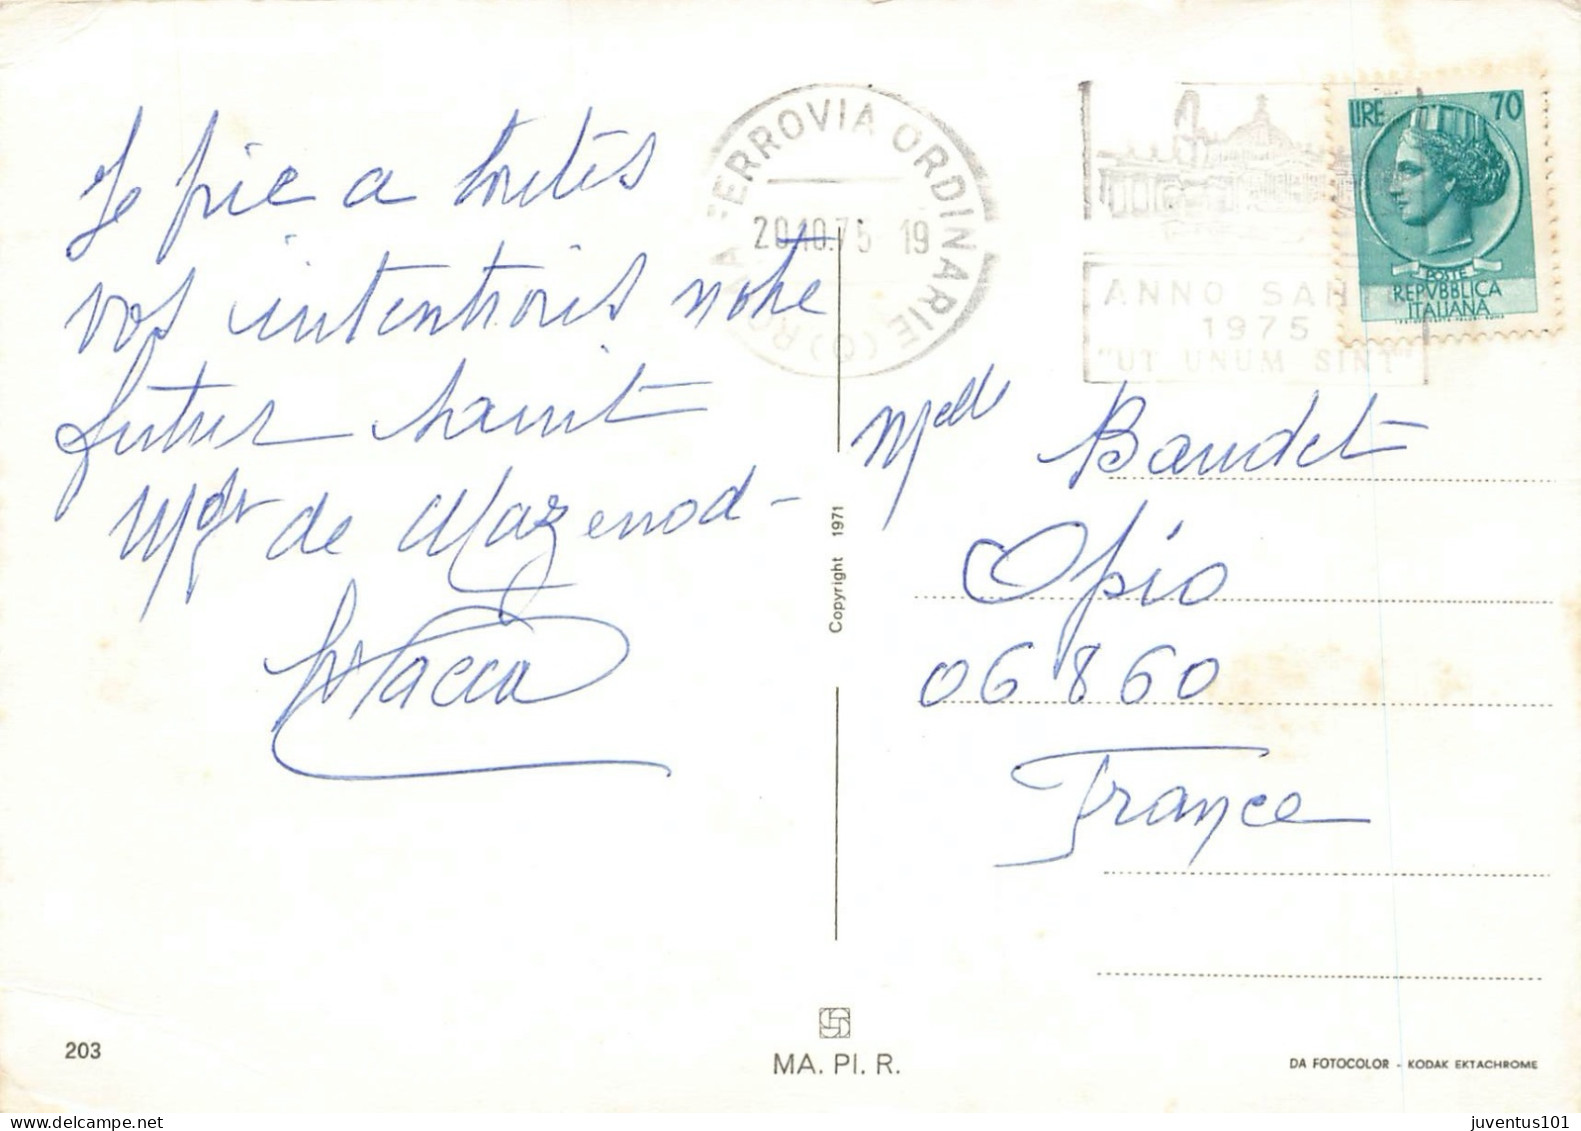 Je prie a toutes
vos intentions notre
futur saint
Mgr de Mazenod -
ROMA FERROVIA ORDINARIE
20.10.75 19
ANNO SANTO
1975
"UT UNUM SINT"
LIRE 70
POSTE
REPVBBLICA
ITALIANA
Melle Baudet
Opio
06860
France
Copyright 1971
203
MA. PI. R.
DA FOTOCOLOR - KODAK EKTACHROME
juventus101